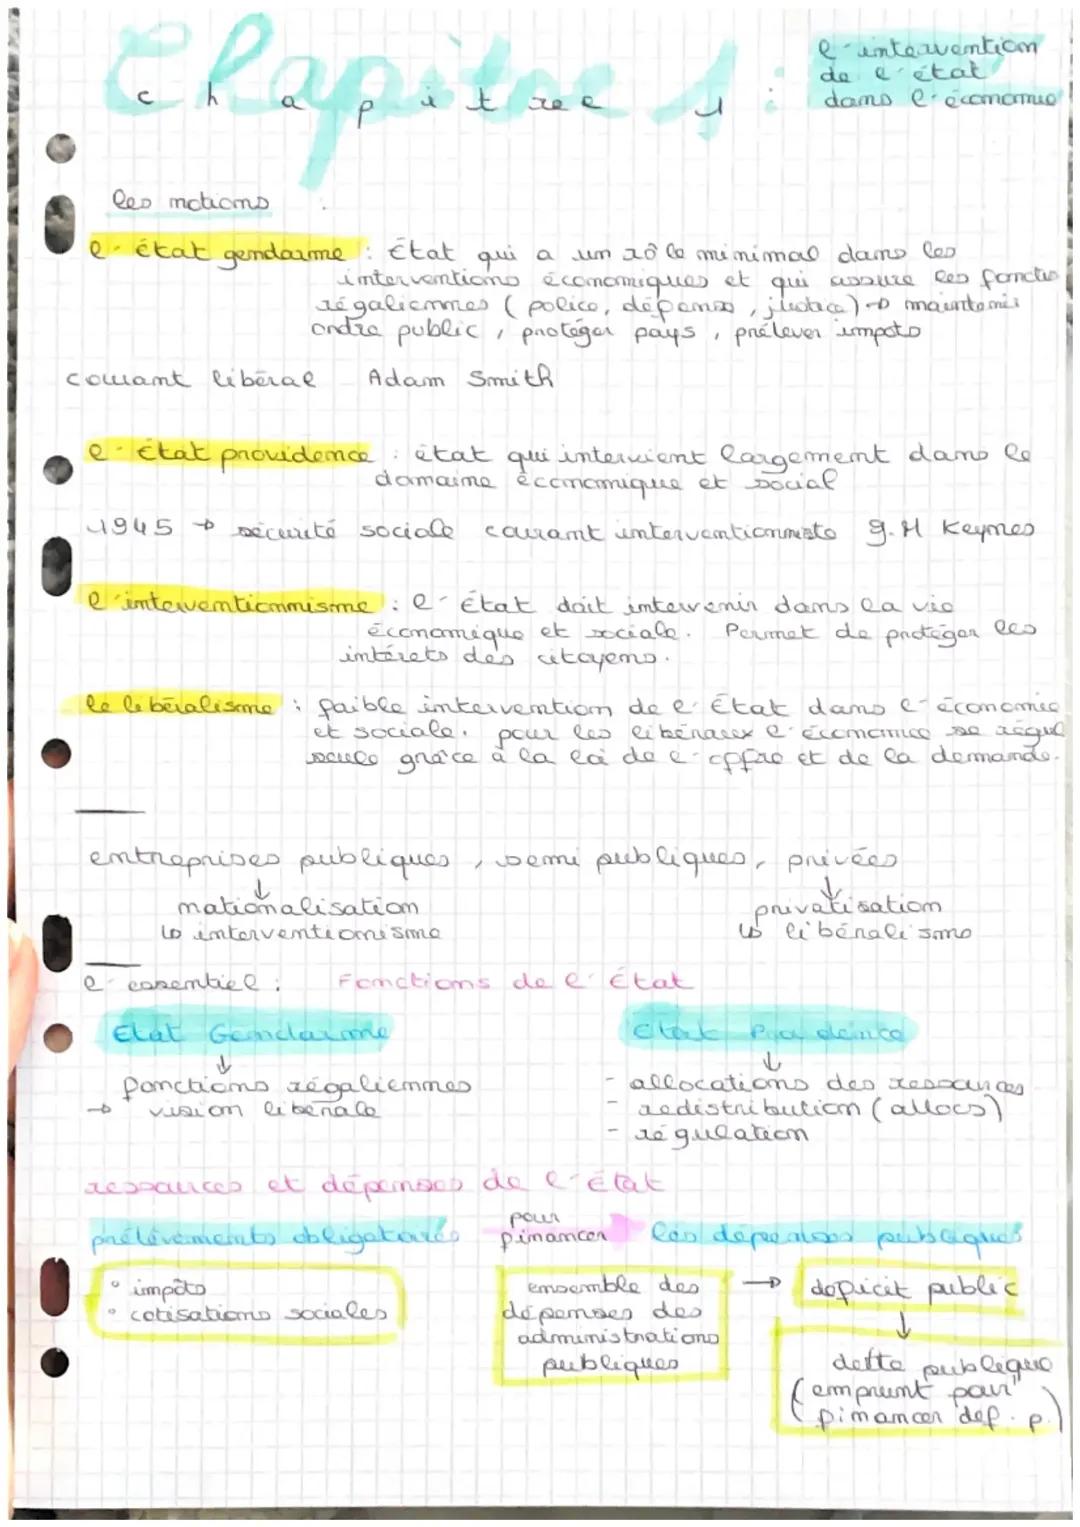 Chapitre 1 :
chapitre 1
l'intervention
de l'état
dans l'économie
les notions :
l'état gendarme : État qui a un rôle minimal dans les
interventions économiques et qui assure les fonctio
régaliennes (police, défense, justice) → maintenir
ordre public, protéger pays, prélever impots
courant libéral Adam Smith
l'État providence : état qui intervient largement dans le
domaine économique et social
1945 → sécurité sociale courant interventionniste J.M Keynes
l'interventionnisme : l'État doit intervenir dans la vie
économique et sociale. Permet de protéger les
intérets des citoyens.
le libéralisme : faible intervention de l'État dans l'économie
et sociale. pour les libéraux l'économie se régul
seule grâce à la loi de l'offre et de la demande.
entreprises publiques, semi publiques, privées
↓ ↓
nationalisation privatisation
↳ interventionisme ↳ libéralisme
l'essentiel : Fonctions de l'État
Etat Gendarme Etat Providence
↓ ↓
fonctions régaliennes - allocations des ressources
→ vision libérale - redistribution (allocs)
- régulation
ressources et dépenses de l'État
prélèvements obligatoires pour financer les dépenses publiques
° impôts
° cotisations sociales
ensemble des
dépenses des
administrations
publiques
→ deficit public
↓
dette publique
(emprunt pour
financer def. p.)